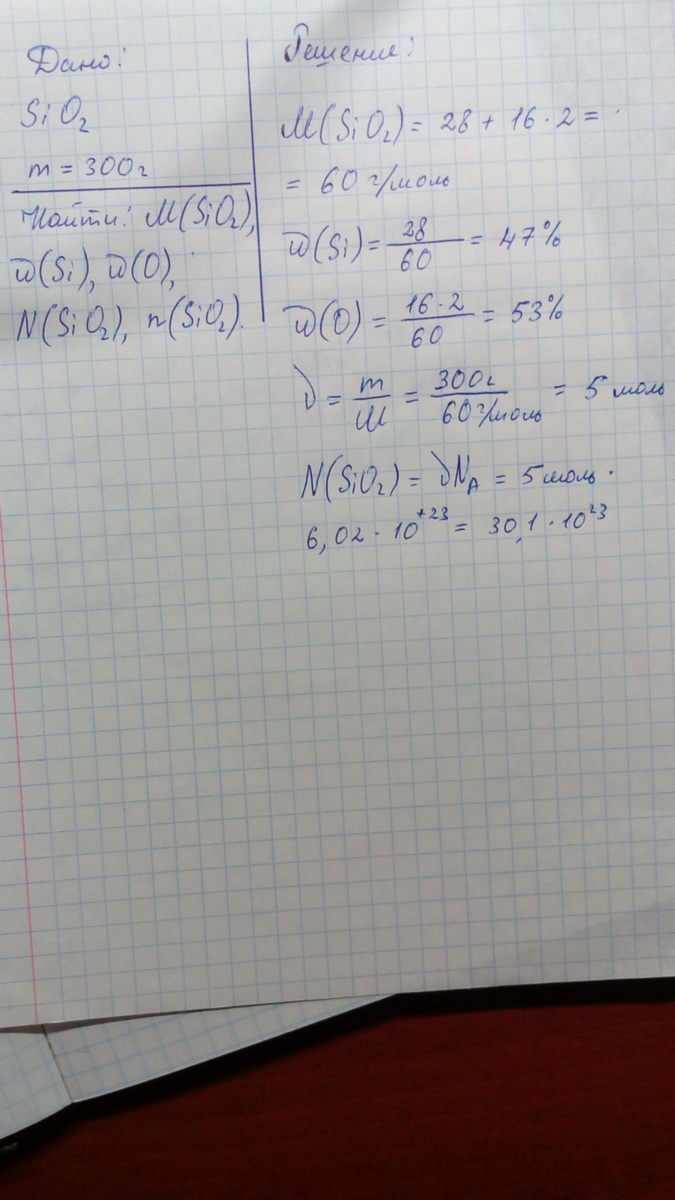 Дано:
SiO₂
m = 300г
Найти: M(SiO₂),
w(Si), w(O),
N(SiO₂), n(SiO₂).
Решение:
M(SiO₂) = 28 + 16 · 2 =
= 60 г/моль
w(Si) = 28/60 = 47%
w(O) = 16·2/60 = 53%
ν = m/M = 300г/60г/моль = 5 моль
N(SiO₂) = νN_A = 5 моль ·
6,02 · 10⁺²³ = 30,1 · 10²³